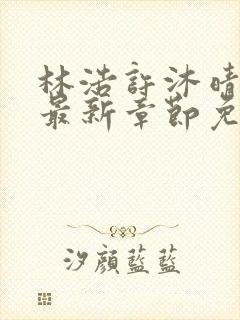 林浩許沐晴
最新章節免
汐顏藍藍